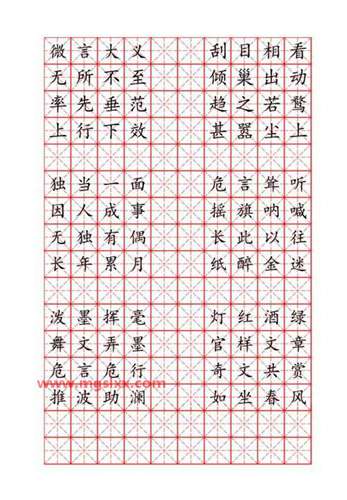 微言大义 刮目相看
无所不至 倾巢出动
率先垂范 趋之若鹜
上行下效 甚嚣尘上
独当一面 危言耸听
因人成事 摇旗呐喊
无独有偶 长此以往
长年累月 纸醉金迷
泼墨挥毫 灯红酒绿
舞文弄墨 官样文章
危言危行 奇文共赏
推波助澜 如坐春风
www.mgsixx.com